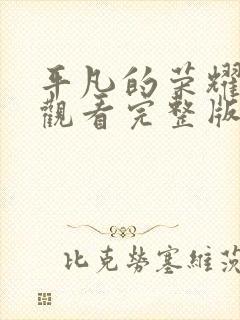 平凡的荣耀
觀看完整版
比克勞塞維茨